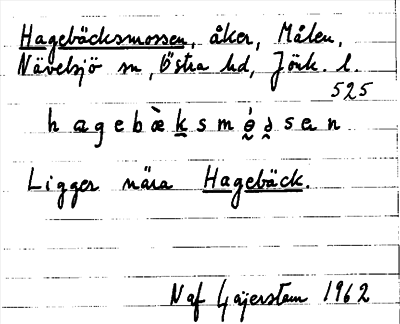 Hagebäcksmossen, åker, Målen,
Nävelsjö sn, Östra hd, Jönk. l.
525
h a g e b æ̀ k s m ó̤ ə̤ s e n
Ligger nära Hagebäck.
Naf Gajerstam 1962